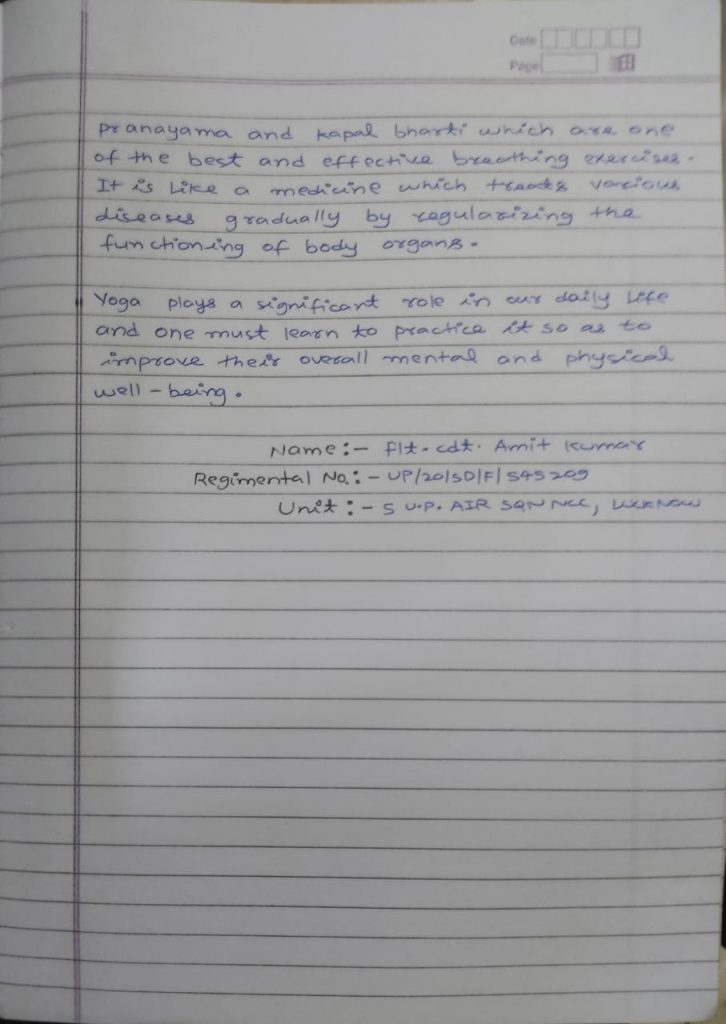 Date
Page
pranayama and kapal bharti which are one
of the best and effective breathing exercises.
It is like a medicine which treats various
diseases gradually by regularizing the
functioning of body organs.
Yoga plays a significant role in our daily life
and one must learn to practice it so as to
improve their overall mental and physical
well-being.
Name:- flt. cdt. Amit Kumar
Regimental No.:- UP/20/SD/F/545209
Unit:- 5 U.P. AIR SQN NCC, LUCKNOW